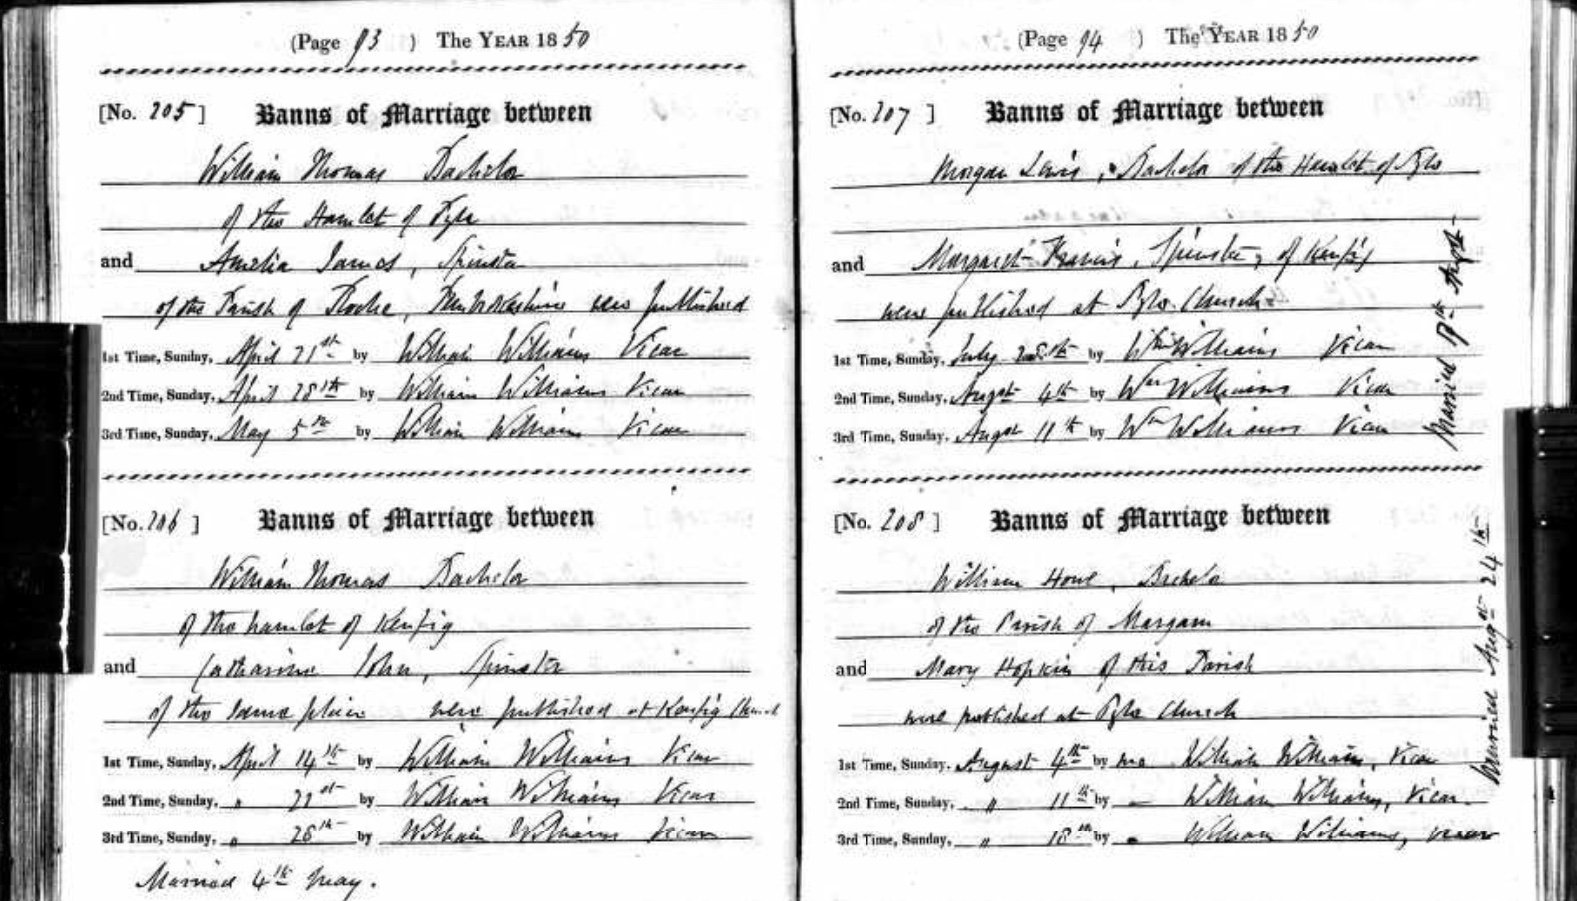 (Page 93 ) The YEAR 1850
[No. 205 ] Banns of Marriage between
William Thomas Bachelor
of the Hamlet of Pyle
and Amelia James, Spinster
of the Parish of Roche, Pembrokeshire were published
1st Time, Sunday, April 21st by William Williams Vicar
2nd Time, Sunday, April 28th by William Williams Vicar
3rd Time, Sunday, May 5th by William Williams Vicar
[No. 206 ] Banns of Marriage between
William Thomas Bachelor
of the hamlet of Kenfig
and Catharine John, Spinster
of the same place were published at Kenfig Church
1st Time, Sunday, April 14th by William Williams Vicar
2nd Time, Sunday, " 21st by William Williams Vicar
3rd Time, Sunday, " 28th by William Williams Vicar
Married 4th May.
(Page 94 ) The YEAR 1850
[No. 207 ] Banns of Marriage between
Morgan Lewis, Bachelor of the Hamlet of Pyle
and Margaret Francis, Spinster, of Kenfig
were published at Pyle Church
1st Time, Sunday, July 28th by Wm Williams Vicar
2nd Time, Sunday, Augst 4th by Wm Williams Vicar
3rd Time, Sunday, Augst 11th by Wm Williams Vicar
Married 17th Augst
[No. 208 ] Banns of Marriage between
William Howe, Bachelor
of the Parish of Margam
and Mary Hopkin of this Parish
were published at Pyle Church
1st Time, Sunday, August 4th by me William Williams, Vicar
2nd Time, Sunday, " 11th by — William Williams, Vicar
3rd Time, Sunday, " 18th by — William Williams, Vicar
Married Augst 24th